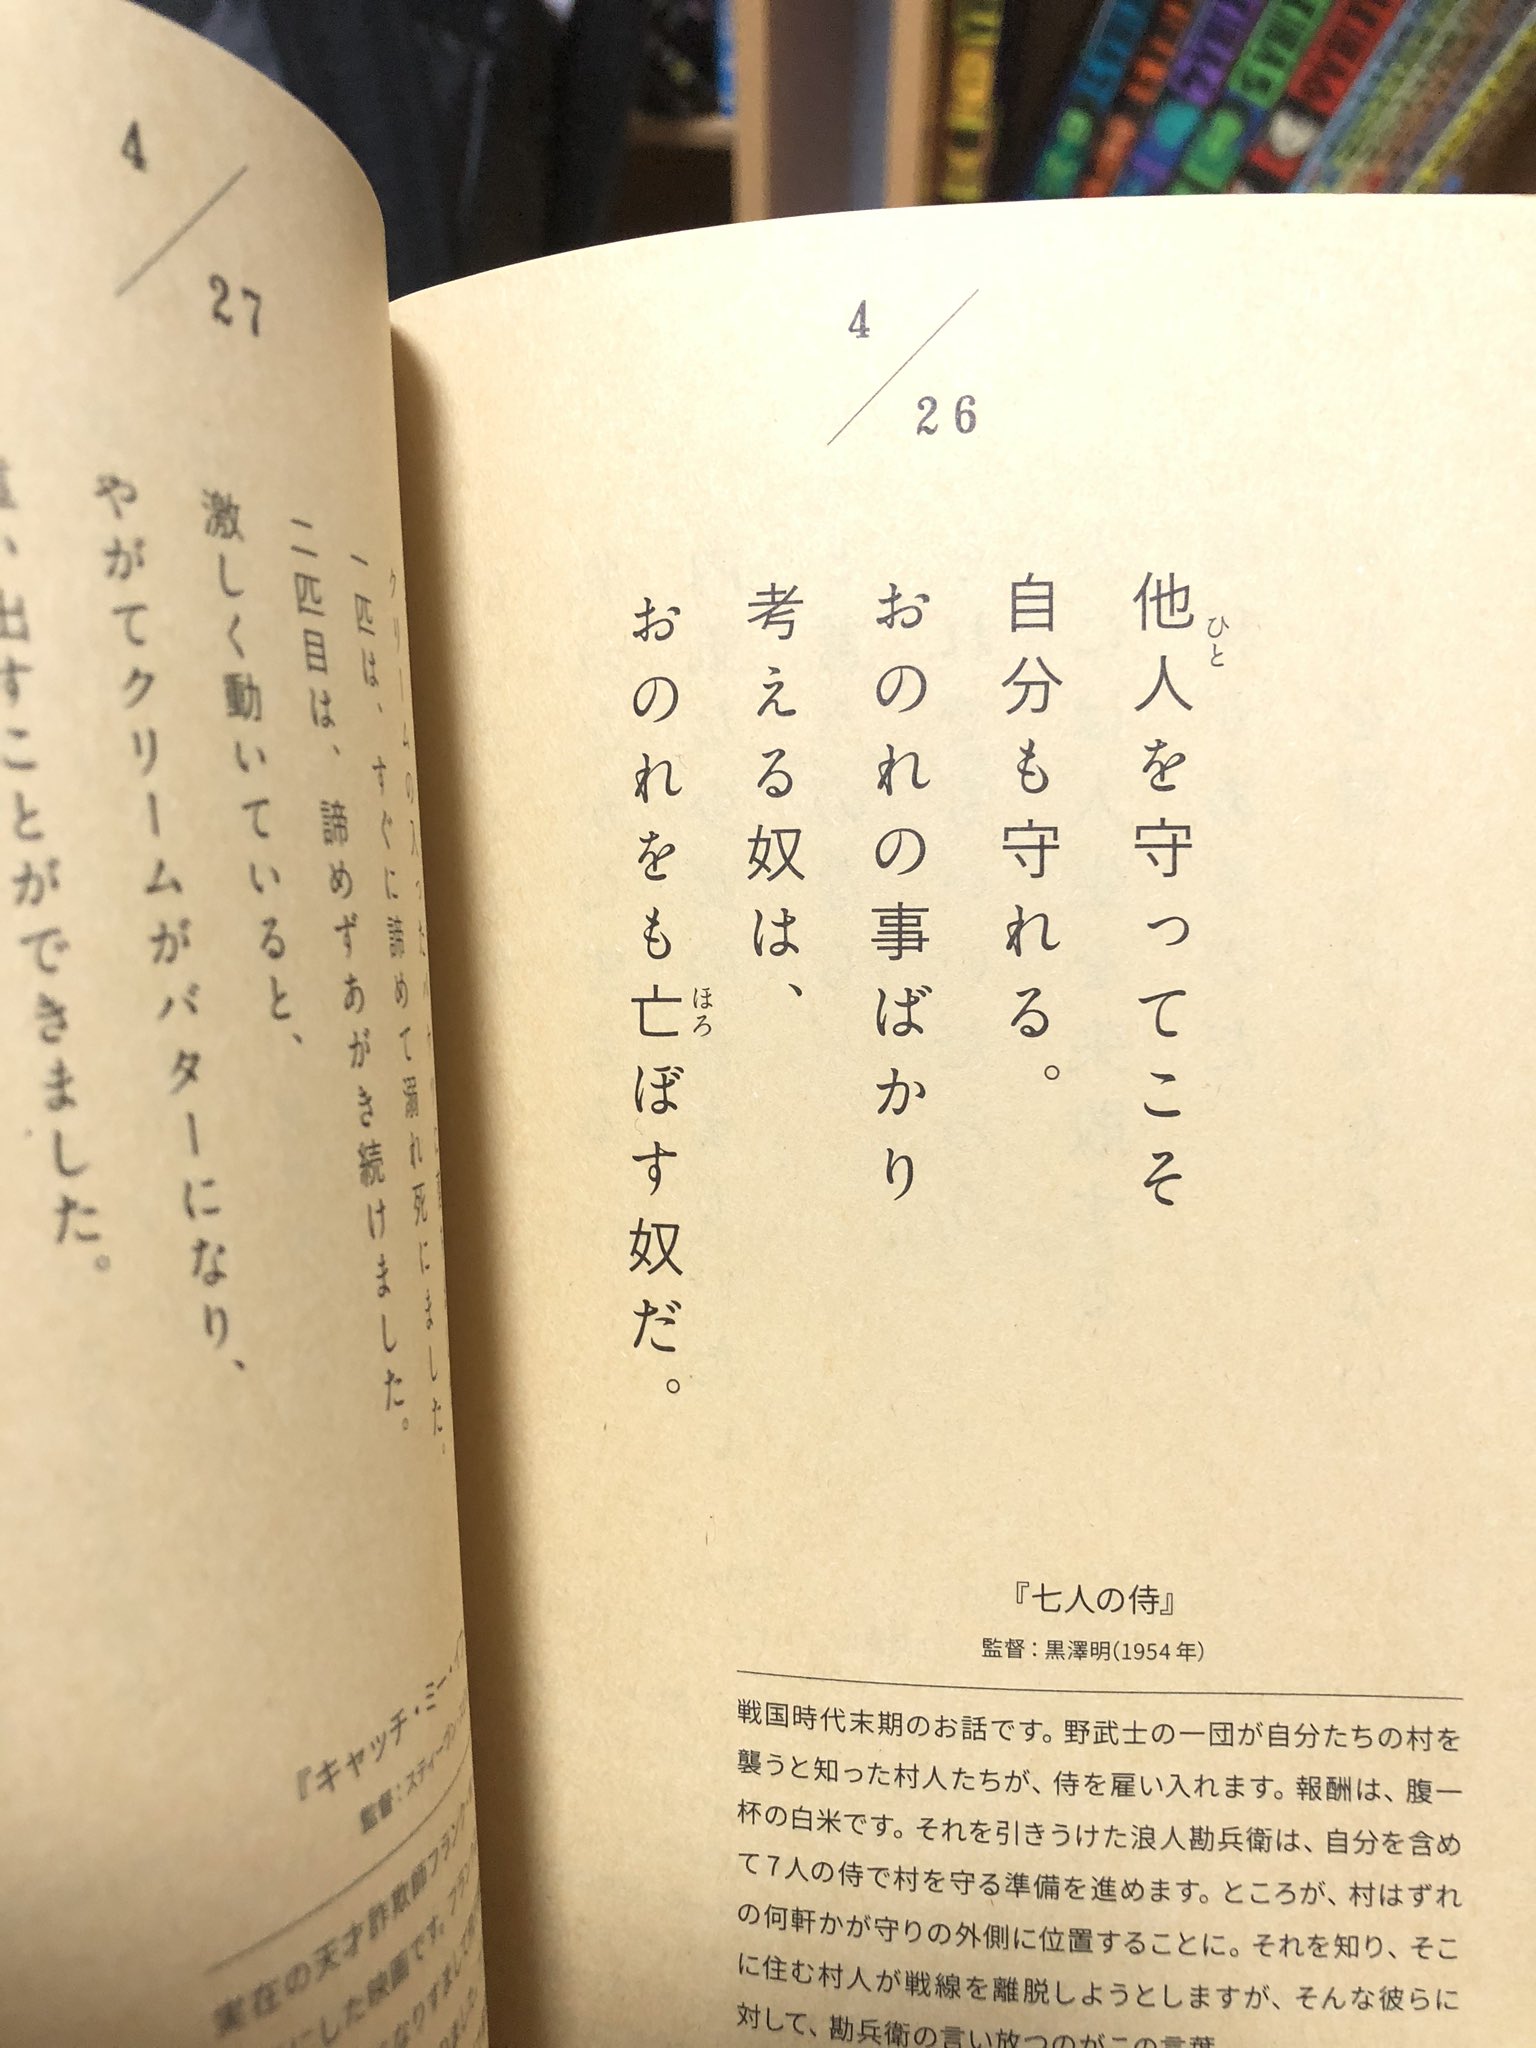 4/26
他人を守ってこそ
ひと
自分も守れる。
おのれの事ばかり
考える奴は、
おのれをも亡ぼす奴だ。
ほろ
『七人の侍』
監督：黒澤明(1954年)
戦国時代末期のお話です。野武士の一団が自分たちの村を
襲うと知った村人たちが、侍を雇い入れます。報酬は、腹一
杯の白米です。それを引きうけた浪人勘兵衛は、自分を含め
て7人の侍で村を守る準備を進めます。ところが、村はずれ
の何軒かが守りの外側に位置することに。それを知り、そこ
に住む村人が戦線を離脱しようとしますが、そんな彼らに
対して、勘兵衛の言い放つのがこの言葉
4/27
一匹は、すぐに諦めて溺れ死にました。
二匹目は、諦めずあがき続けました。
激しく動いていると、
やがてクリームがバターになり、
い出すことができました。
『キャッチ・ミー・イ
監督：スティーヴン・
実在の天才詐欺師フランク・
にした映画です。フラン